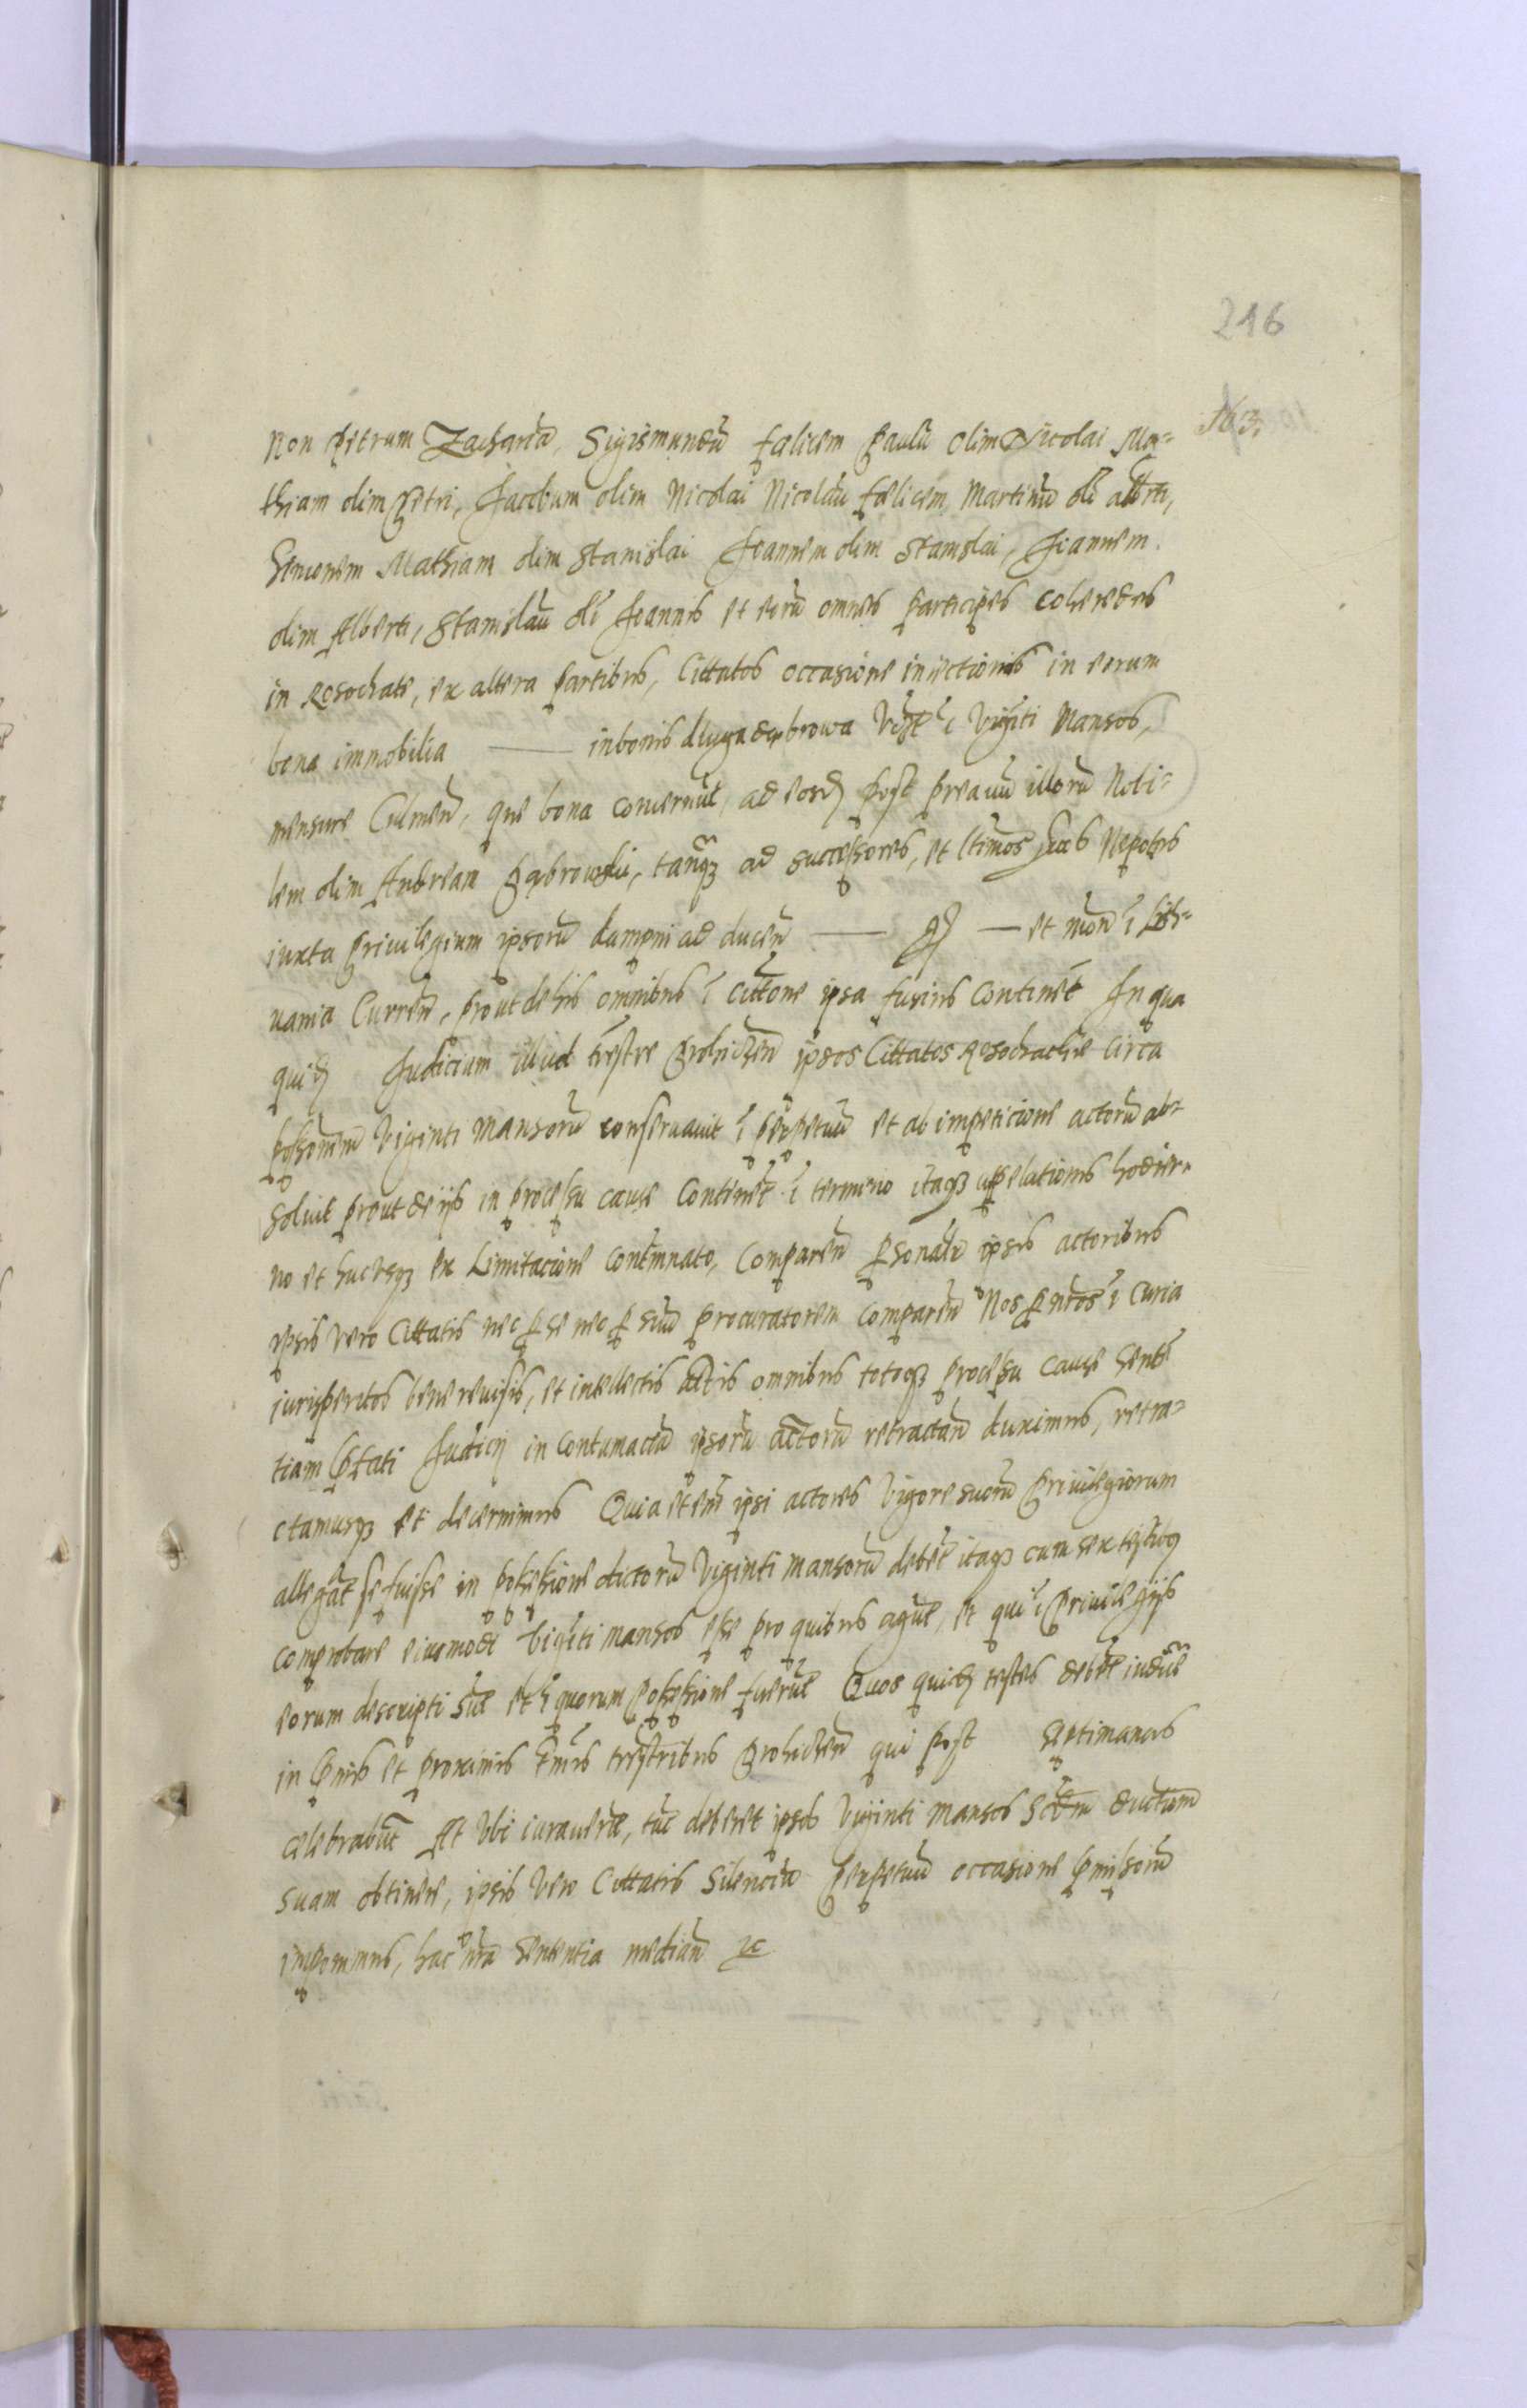 216
163.
Non Petrum Zachariā, Sigismundū fælicem Paulū olim Nicolai Ma=
thiam olim Petri, Jacobum olim Nicolai Nicolaū fælicem, Martinū oli Alb̃rti,
Simonem Mathiam olim Stanislai Joannem olim Stanislai, Joannem
olim Alberti, Stanislaū oli Joannis et eorū omnes participes coheredes
in Rosochate, ex altera partibus, Cittatos occasione iniectionis in eorum
bona immobilia —— in bonis dluga dąbrowa ĩ viginti Mansos,
mensure Culmeñ, que bona concernūt, ad eosd post preauū illorū Nobi=
lem olim Andream Dąbrowski, tanq̃ ad successores, et ltimos Nepotes
iuxta Priuilegium ipsorū dampni ad duceñ —— —— et moñ ĩ Lith=
uania Curreñ, prout de his omnibus ĩ citt̃one ipsa fusius continet̃ In qua
quid Judicium illud t̃restre Drohiczeñ ipsos Cittatos Rosochackie circa
poss̃onem viginti mansorū conseruauit ĩ perpetuū et ab impeticione actorū ab=
soluit prout de ijs in processu cause continet̃ ĩ termino itaq appelationis hodier=
no et hucusq ex Limitacione contĩnnato, Compareñ p̱sonalr ipsis actoribus
ipsis vero Cittatis nec p̱ se nec p̱ suū procuratorem compareñ Nos p̱ nr̃os ĩ Curia
iurisperitos bene reuisis, et intellectis actis omnibus totoq processu cause senteñ
tiam p̃fati Judicij in contumaciā ipsorū actorū retractañ duximus, retra=
ctamusq et decernimus Quia et̃em ipsi actores vigore suorū Priuilegiorum
allegāt se fuisse in possessione dictorū viginti mansorū debēt itaq cum sex testibq
comprobare eiusmodi vigiti mansos esse pro quibus agūt, et qui ĩ Priuilegijs
eorum descripti sūt et ĩ quorum possessione fuerūt Quos quid testes debēt inducẽ
in p̃mis et proximis t̃mis trestribus Drohiczeñ qui post septimanas
celebrabūt At vbi iurauerīt, tūc debeñt ipsos viginti mansos scd̃m ductum
suam obtinere, ipsis vero Cittatis silenciū perpetuū occasione p̃missorū
inponimus, hac nr̃a sententia mediañ &c